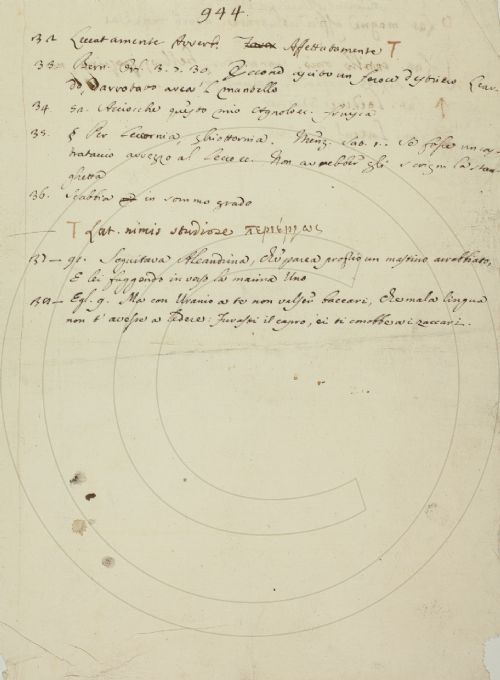 944.
32. Leccatamente Avverb. Affettatamente T
33. Bern. Orl. 3. 7. 30. Eccone ascito un feroce destriero Lear-
do, arrotato avea l mantello
34. Sa. Acciocche questo mio
35. § Per Leccornia, ghiottornia. Menz. Sat. 1. Se fosse un ca-
tratacio avvezzo al Lecco ec. Non avrebber gli la stan-
ghetta
36. Rabbia in sommo grado
T Lat. nimis studiose περιέργως
37 – 90. Seguitava Aleandrina, che parea proprio un mastino arrabbiato,
E lei fuggendo in verso la marina Uno
39 – Egl. 9. Ma con Uranio a te non valser baccari, Che mala lingua
non t' avesse a ledere: Furasti il capro, ei ti conobbe ai zaccari.